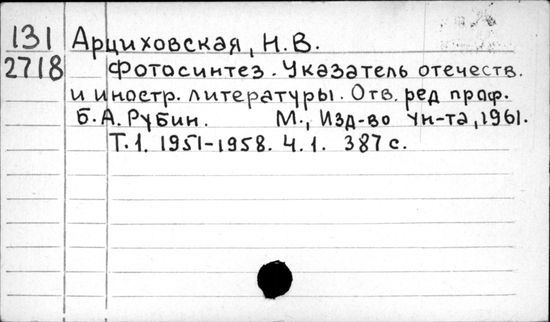 131 Арциховская, Н.В.
2718 Фотосинтез. Указатель отечеств.
и иностр. литературы. Отв. ред проф.
Б.А. Рубин. М., Изд-во Ун-та, 1961.
Т.1. 1951-1958. Ч.1. 387 с.